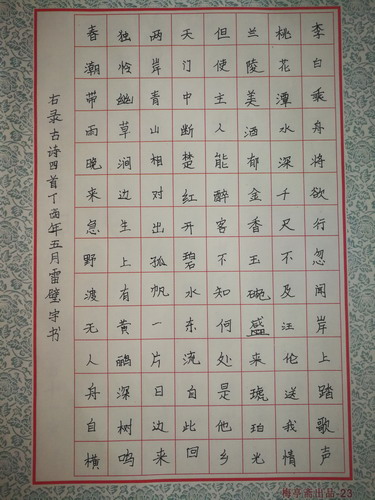 李白乘舟将欲行忽闻岸上踏歌声
桃花潭水深千尺不及汪伦送我情
兰陵美酒郁金香玉碗盛来琥珀光
但使主人能醉客不知何处是他乡
天门中断楚红开碧水东流自此回
两岸青山相对出孤帆一片日边来
独怜幽草涧边生上有黄鹂深树鸣
春潮带雨晚来急野渡无人舟自横
右录古诗四首丁酉年五月雷壁宇书
出品-23